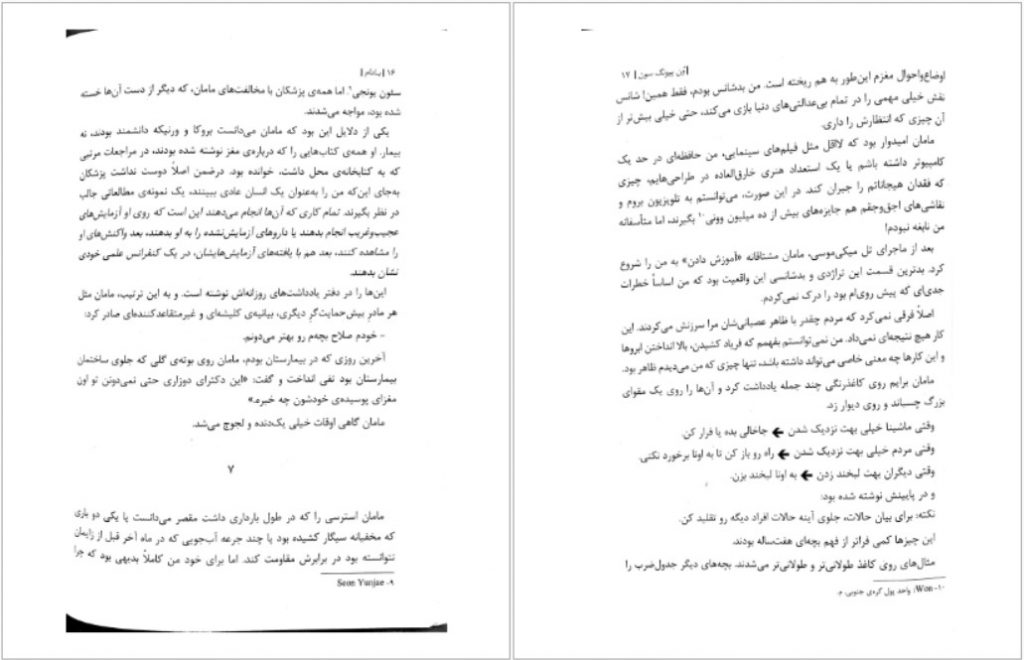 ۱۶ | بادام |
سئون یونجی۹. اما همه‌ی پزشکان با مخالفت‌های مامان، که دیگر از دست آن‌ها خسته
شده بود، مواجه می‌شدند.
یکی از دلایل این بود که مامان می‌دانست بروکا و ورنیکه دانشمند بودند، نه
بیمار. او همه‌ی کتاب‌هایی را که درباره‌ی مغز نوشته شده بودند، در مراجعات مرتبی
که به کتابخانه‌ی محل داشت، خوانده بود. درضمن اصلاً دوست نداشت پزشکان
به‌جای این‌که من را به‌عنوان یک انسان عادی ببینند، یک نمونه‌ی مطالعاتی جالب
در نظر بگیرند. تمام کاری که آن‌ها انجام می‌دهند این است که روی او آزمایش‌های
عجیب‌وغریب انجام بدهند یا داروهای آزمایش‌نشده را به او بدهند، بعد واکنش‌های او
را مشاهده کنند، بعد هم با یافته‌های آزمایش‌هایشان، در یک کنفرانس علمی خودی
نشان بدهند.
این‌ها را در دفتر یادداشت‌های روزانه‌اش نوشته است. و به این ترتیب، مامان مثل
هر مادرِ بیش‌حمایت‌گرِ دیگری، بیانیه‌ی کلیشه‌ای و غیرمتقاعدکننده‌ای صادر کرد:
- خودم صلاح بچه‌م رو بهتر می‌دونم.
آخرین روزی که در بیمارستان بودم، مامان روی بوته‌ی گلی که جلوی ساختمان
بیمارستان بود تفی انداخت و گفت: «این دکترای دوزاری حتی نمی‌دونن تو اون
مغزای پوسیده‌ی خودشون چه خبره.»
مامان گاهی اوقات خیلی یک‌دنده و لجوج می‌شد.
۷
مامان استرسی را که در طول بارداری داشت مقصر می‌دانست یا یکی دو باری
که مخفیانه سیگار کشیده بود یا چند جرعه آب‌جویی که در ماه آخر قبل از زایمان
نتوانسته بود در برابرش مقاومت کند. اما برای خود من کاملاً بدیهی بود که چرا
۹- Seon Yunjae
| وُن پیونگ سون | ۱۷
اوضاع‌واحوال مغزم این‌طور به هم ریخته است. من بدشانس بودم، فقط همین! شانس
نقش خیلی مهمی را در تمام بی‌عدالتی‌های دنیا بازی می‌کند، حتی خیلی بیش‌تر از
آن چیزی که انتظارش را داری.
مامان امیدوار بود که لااقل مثل فیلم‌های سینمایی، من حافظه‌ای در حد یک
کامپیوتر داشته باشم یا یک استعداد هنری خارق‌العاده در طراحی‌هایم، چیزی
که فقدان هیجاناتم را جبران کند. در این صورت، می‌توانستم به تلویزیون بروم و
نقاشی‌های اجق‌وجقم هم جایزه‌های بیش از ده میلیون وونی۱۰ بگیرند، اما متأسفانه
من نابغه نبودم!
بعد از ماجرای تل میکی‌موسی، مامان مشتاقانه «آموزش دادن» به من را شروع
کرد. بدترین قسمت این تراژدی و بدشانسی این واقعیت بود که من اساساً خطرات
جدی‌ای که پیش روی‌ام بود را درک نمی‌کردم.
اصلاً فرقی نمی‌کرد که مردم چقدر با ظاهر عصبانی‌شان مرا سرزنش می‌کردند. این
کار هیچ نتیجه‌ای نمی‌داد. من نمی‌توانستم بفهمم که فریاد کشیدن، بالا انداختن ابروها
و این کارها چه معنی خاصی می‌تواند داشته باشد، تنها چیزی که من می‌دیدم ظاهر بود.
مامان برایم روی کاغذرنگی چند جمله یادداشت کرد و آن‌ها را روی یک مقوای
بزرگ چسباند و روی دیوار زد.
وقتی ماشینا خیلی بهت نزدیک شدن ← جاخالی بده یا فرار کن.
وقتی مردم خیلی بهت نزدیک شدن ← راه رو باز کن تا به اونا برخورد نکنی.
وقتی دیگران بهت لبخند زدن ← به اونا لبخند بزن.
و در پایینش نوشته شده بود:
نکته: برای بیان حالات، جلوی آینه حالات افراد دیگه رو تقلید کن.
این چیزها کمی فراتر از فهم بچه‌ای هفت‌ساله بودند.
مثال‌های روی کاغذ طولانی‌تر و طولانی‌تر می‌شدند. بچه‌های دیگر جدول‌ضرب را
۱۰- Won: واحد پول کره‌ی جنوبی. م.